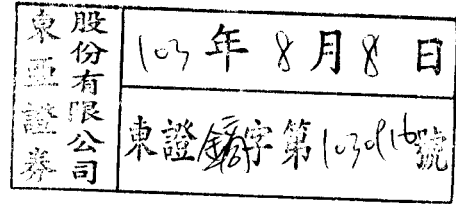 東亞證券
股份有限公司
103年8月8日
東證鏑字第1030916號